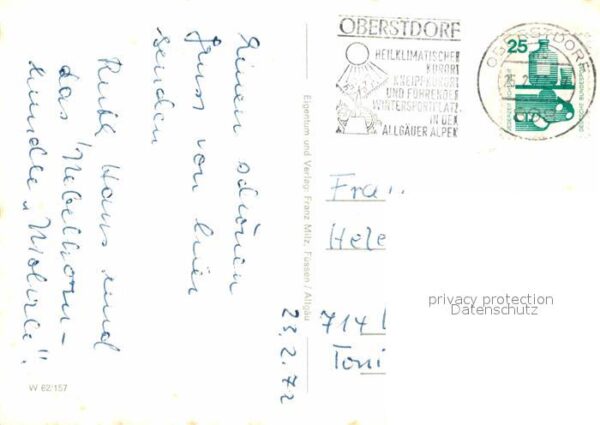 OBERSTDORF
HEILKLIMATISCHER
KURORT
KNEIPPKURORT
UND FÜHRENDER
WINTERSPORTPLATZ
IN DEN
ALLGÄUER ALPEN
OBERSTDORF
25
DEUTSCHE BUNDESPOST
Einen schönen
Gruss von hier
senden
Ruth, Hans und
das Nebelhorn-
hundle "Mohrle".
23.2.72
Eigentum und Verlag: Franz Milz, Füssen / Allgäu
Frau
Hele
714
Toni
privacy protection
Datenschutz
W 62/157